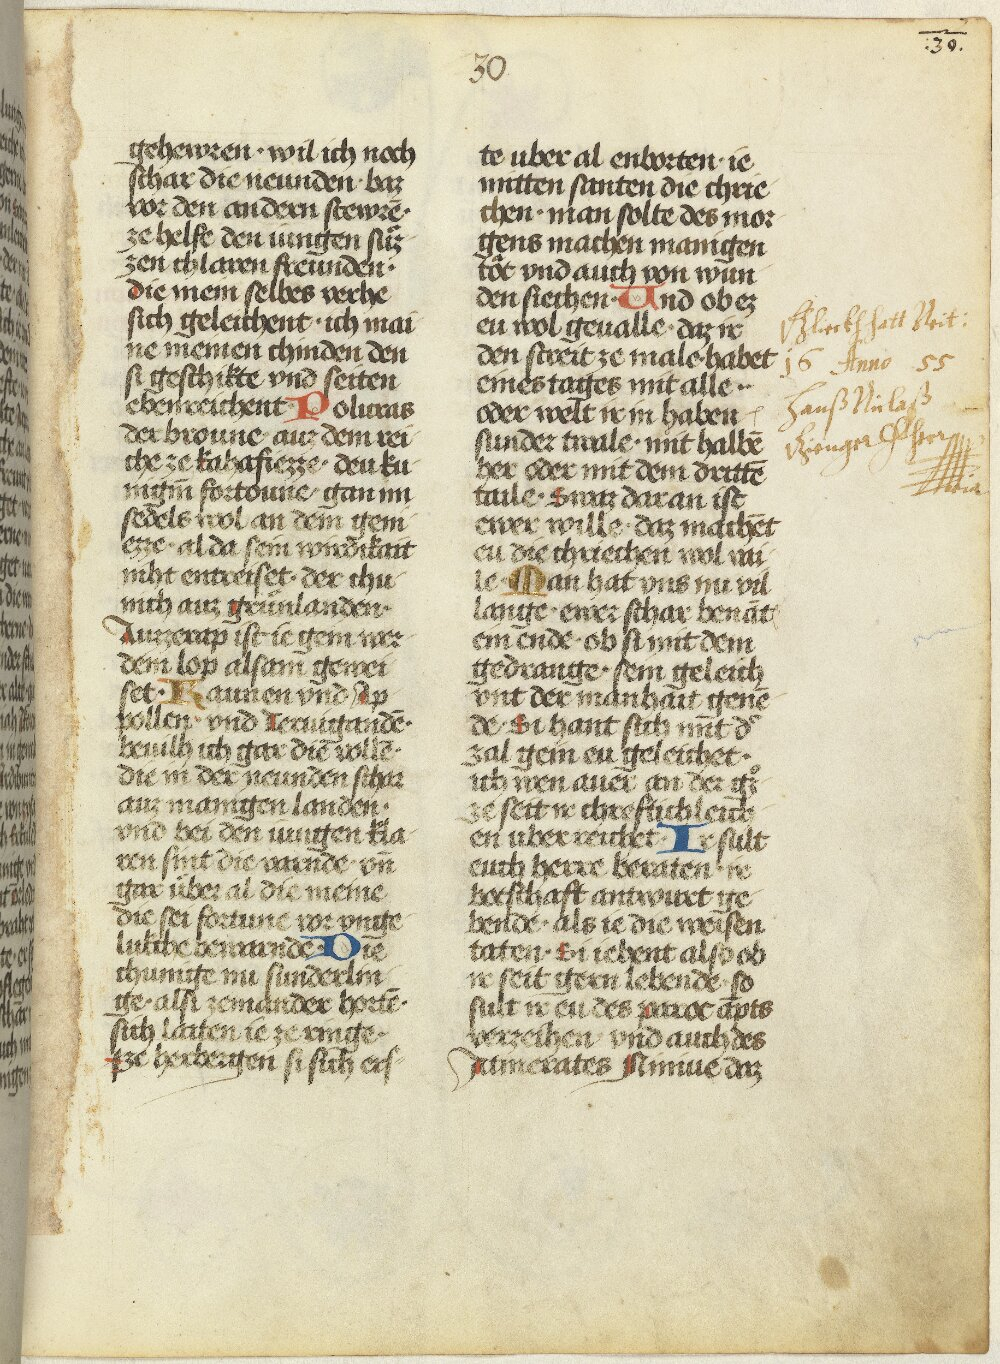 30
:30.
gehewren · wil ich noch
schar die neunden · baz
vor den andern stewrē·
ze helfe den iungen süz
zen chlaren freunden·
die mein selbes verhe
sich geleichent · ich mai
ne meinen chinden den
si geschikte vnd seiten
ebenreichent · Poluras
der broune auz dem rei
che ze kahafiezze · deu ku
nigin fortoune gan im
sedels wol an dem geni
ezze · al da sein wirdikait
niht entreiset · der chu
nich auz grünlanden·
Aurzerap ist ie gein wer
dem lop alsam gewei
set · Raunen vnd Ap
pollen · vnd Teruigandē·
beuilh ich gar die vollē·
die in der neunden schar
auz manigen landen·
vnd bei den iungen kla
ren sint die warnde vn̄
gar über al die meine
die sei fortune vor vnge
lukche bewarnde · Die
chunige nu sunderlin
ge · alsi zemander hortē·
sich laiten ie ze ringe·
ze herbergen si sich ers
te uber al enborten · ie
mitten santen die chrie
chen · man solte des mor
gens machen manigen
töt vnd auch von wun
den siechen · Vnd ob ez
eu wol geualle · daz ir
den streit ze male habet
eines tages mit alle ·
oder welt ir in haben
sunder twale · mit halbē
her oder mit dem drittē
taile · Swaz daran ist
ewer wille · daz machēt
eu die chriechen wol vai
le · Man hat vns nu vil
lange · ewer schar benāt
ein ende · ob si mit dem
gedrange · sein geleich
vnt der manhait genē
de · Si hant sich mit d͛
zal gein eu geleichet ·
ich wen auer an der gz̊
ze seit ir chreftichleich
en uberreichet · Ir sult
euch herre beraten · ir
botschaft antwurt ge
bende · als ie die weisen
taten · Si iehent also ob
ir seit gern lebende · so
sult ir eu des paroc apts
verzeihen · vnd auch des
Namerates Niniue daz
16 Anno 55